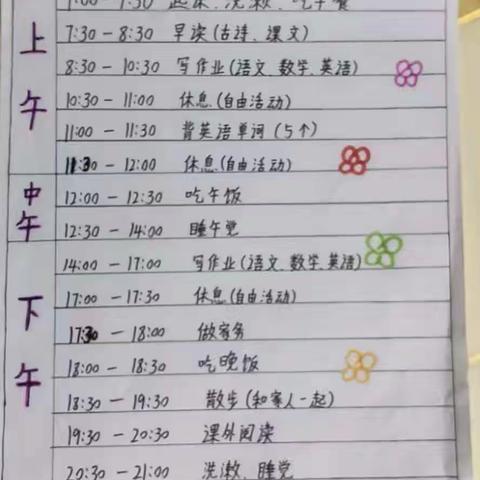 7:00 - 7:30 起床、洗漱、吃早餐
上午
7:30 - 8:30 早读(古诗、课文)
8:30 - 10:30 写作业(语文、数学、英语)
10:30 - 11:00 休息(自由活动)
11:00 - 11:30 背英语单词(5个)
11:30 - 12:00 休息(自由活动)
中午
12:00 - 12:30 吃午饭
12:30 - 14:00 睡午觉
下午
14:00 - 17:00 写作业(语文、数学、英语)
17:00 - 17:30 休息(自由活动)
17:30 - 18:00 做家务
18:00 - 18:30 吃晚饭
18:30 - 19:30 散步(和家人一起)
19:30 - 20:30 课外阅读
20:30 - 21:00 洗漱、睡觉